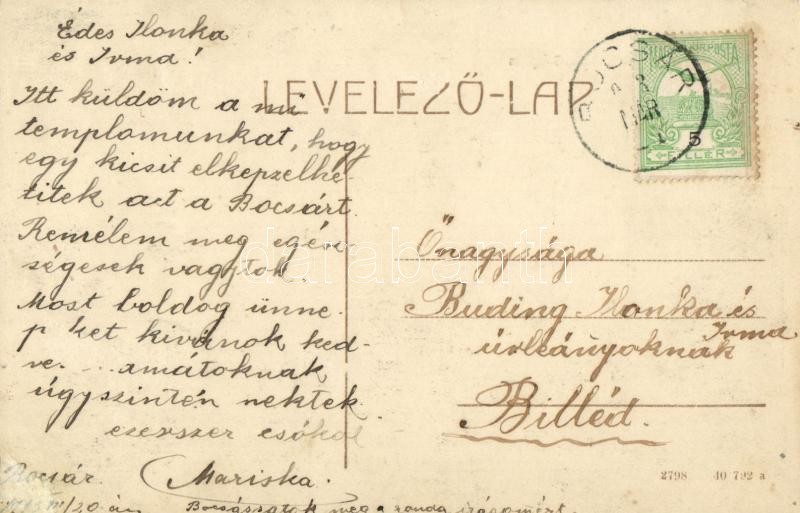 Édes Ilonka
és Irma!
Itt küldöm a mi
templomunkat, hogy
egy kicsit elképzelhe-
titek act a Bocsárt.
Remélem meg egés-
ségesek vagytok.
Most boldog ünne-
p ket kivánok ked-
ve. amátoknak
úgyszintén nektek.
ezerszer csókol
Bocsár. Mariska.
III/20-án Bocsássatok meg a ronda irásomért.
LEVELEZŐ-LAP
BOCSÁR
MÁR
MAGYAR KIR. POSTA
5
FILLÉR
Őnagysága
Buding Ilonka és
Irma
úrleányoknak
Billéd.
2798 40 792 a
darabanth